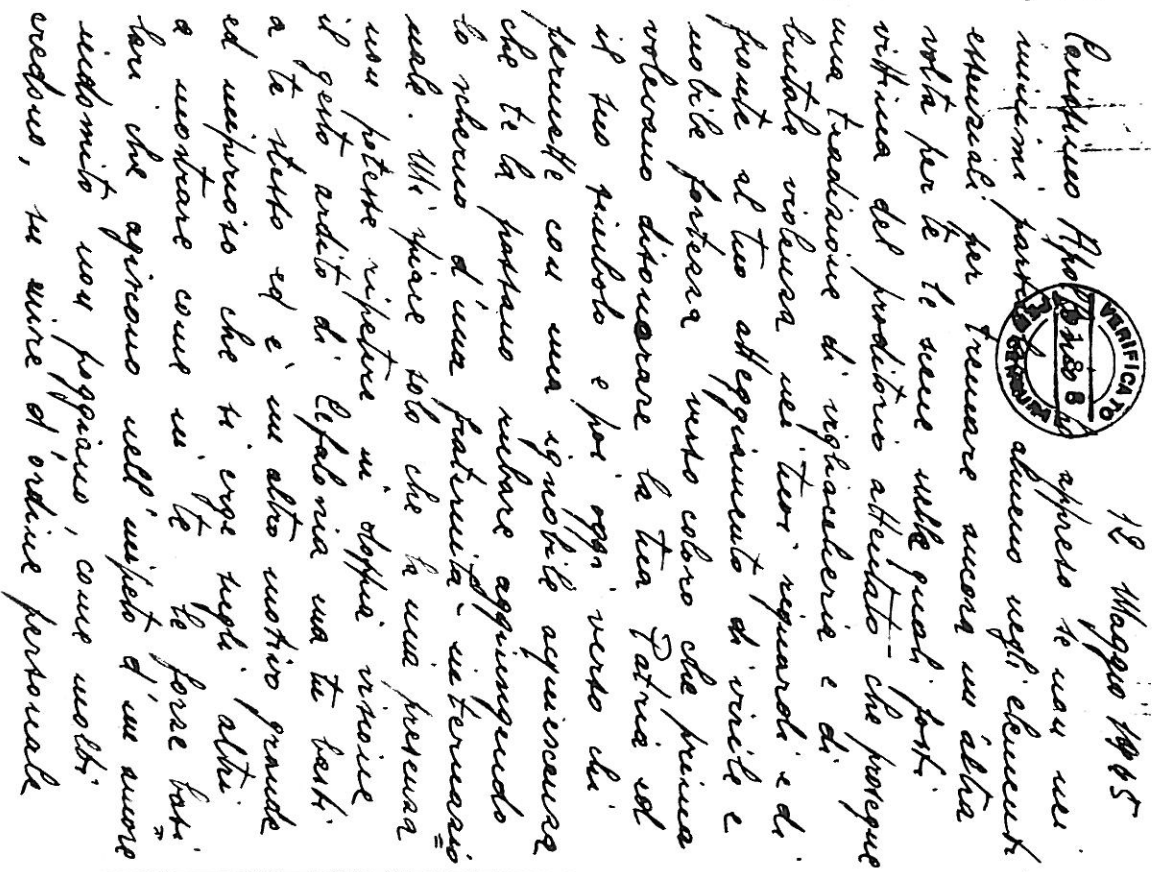 12 Maggio 1945
Carissimo Apollonio appreso se non nei
minimi almeno negli elementi
essenziali, per tremare ancora un'altra
volta per te le scene nelle quali fosti
vittima del proditorio attentato - che prosegue
una tradizione di vigliaccheria e di
brutale violenza nei tuoi riguardi e di
fronte al tuo atteggiamento di virile e
nobile fortezza verso coloro che prima
volevano disonorare la tua Patria ed
il suo simbolo e poi oggi verso chi
permette con una ignobile acquiescenza
che te la possano rubare aggiungendo
lo scherno d'una fraternità internazio=
nale. Mi spiace solo che la mia presenza
non potesse ripetere in doppia visione
il gesto ardito di Cefalonia ma tu basti
a te stesso ed è un altro motivo grande
ed imperioso che si erge sugli altri
a mostrare come in te le forze tose
lari che agiscono nell'impeto d'un amore
indomito non poggiano, come molti
credono, su mire d'ordine personale
VERIFICATO